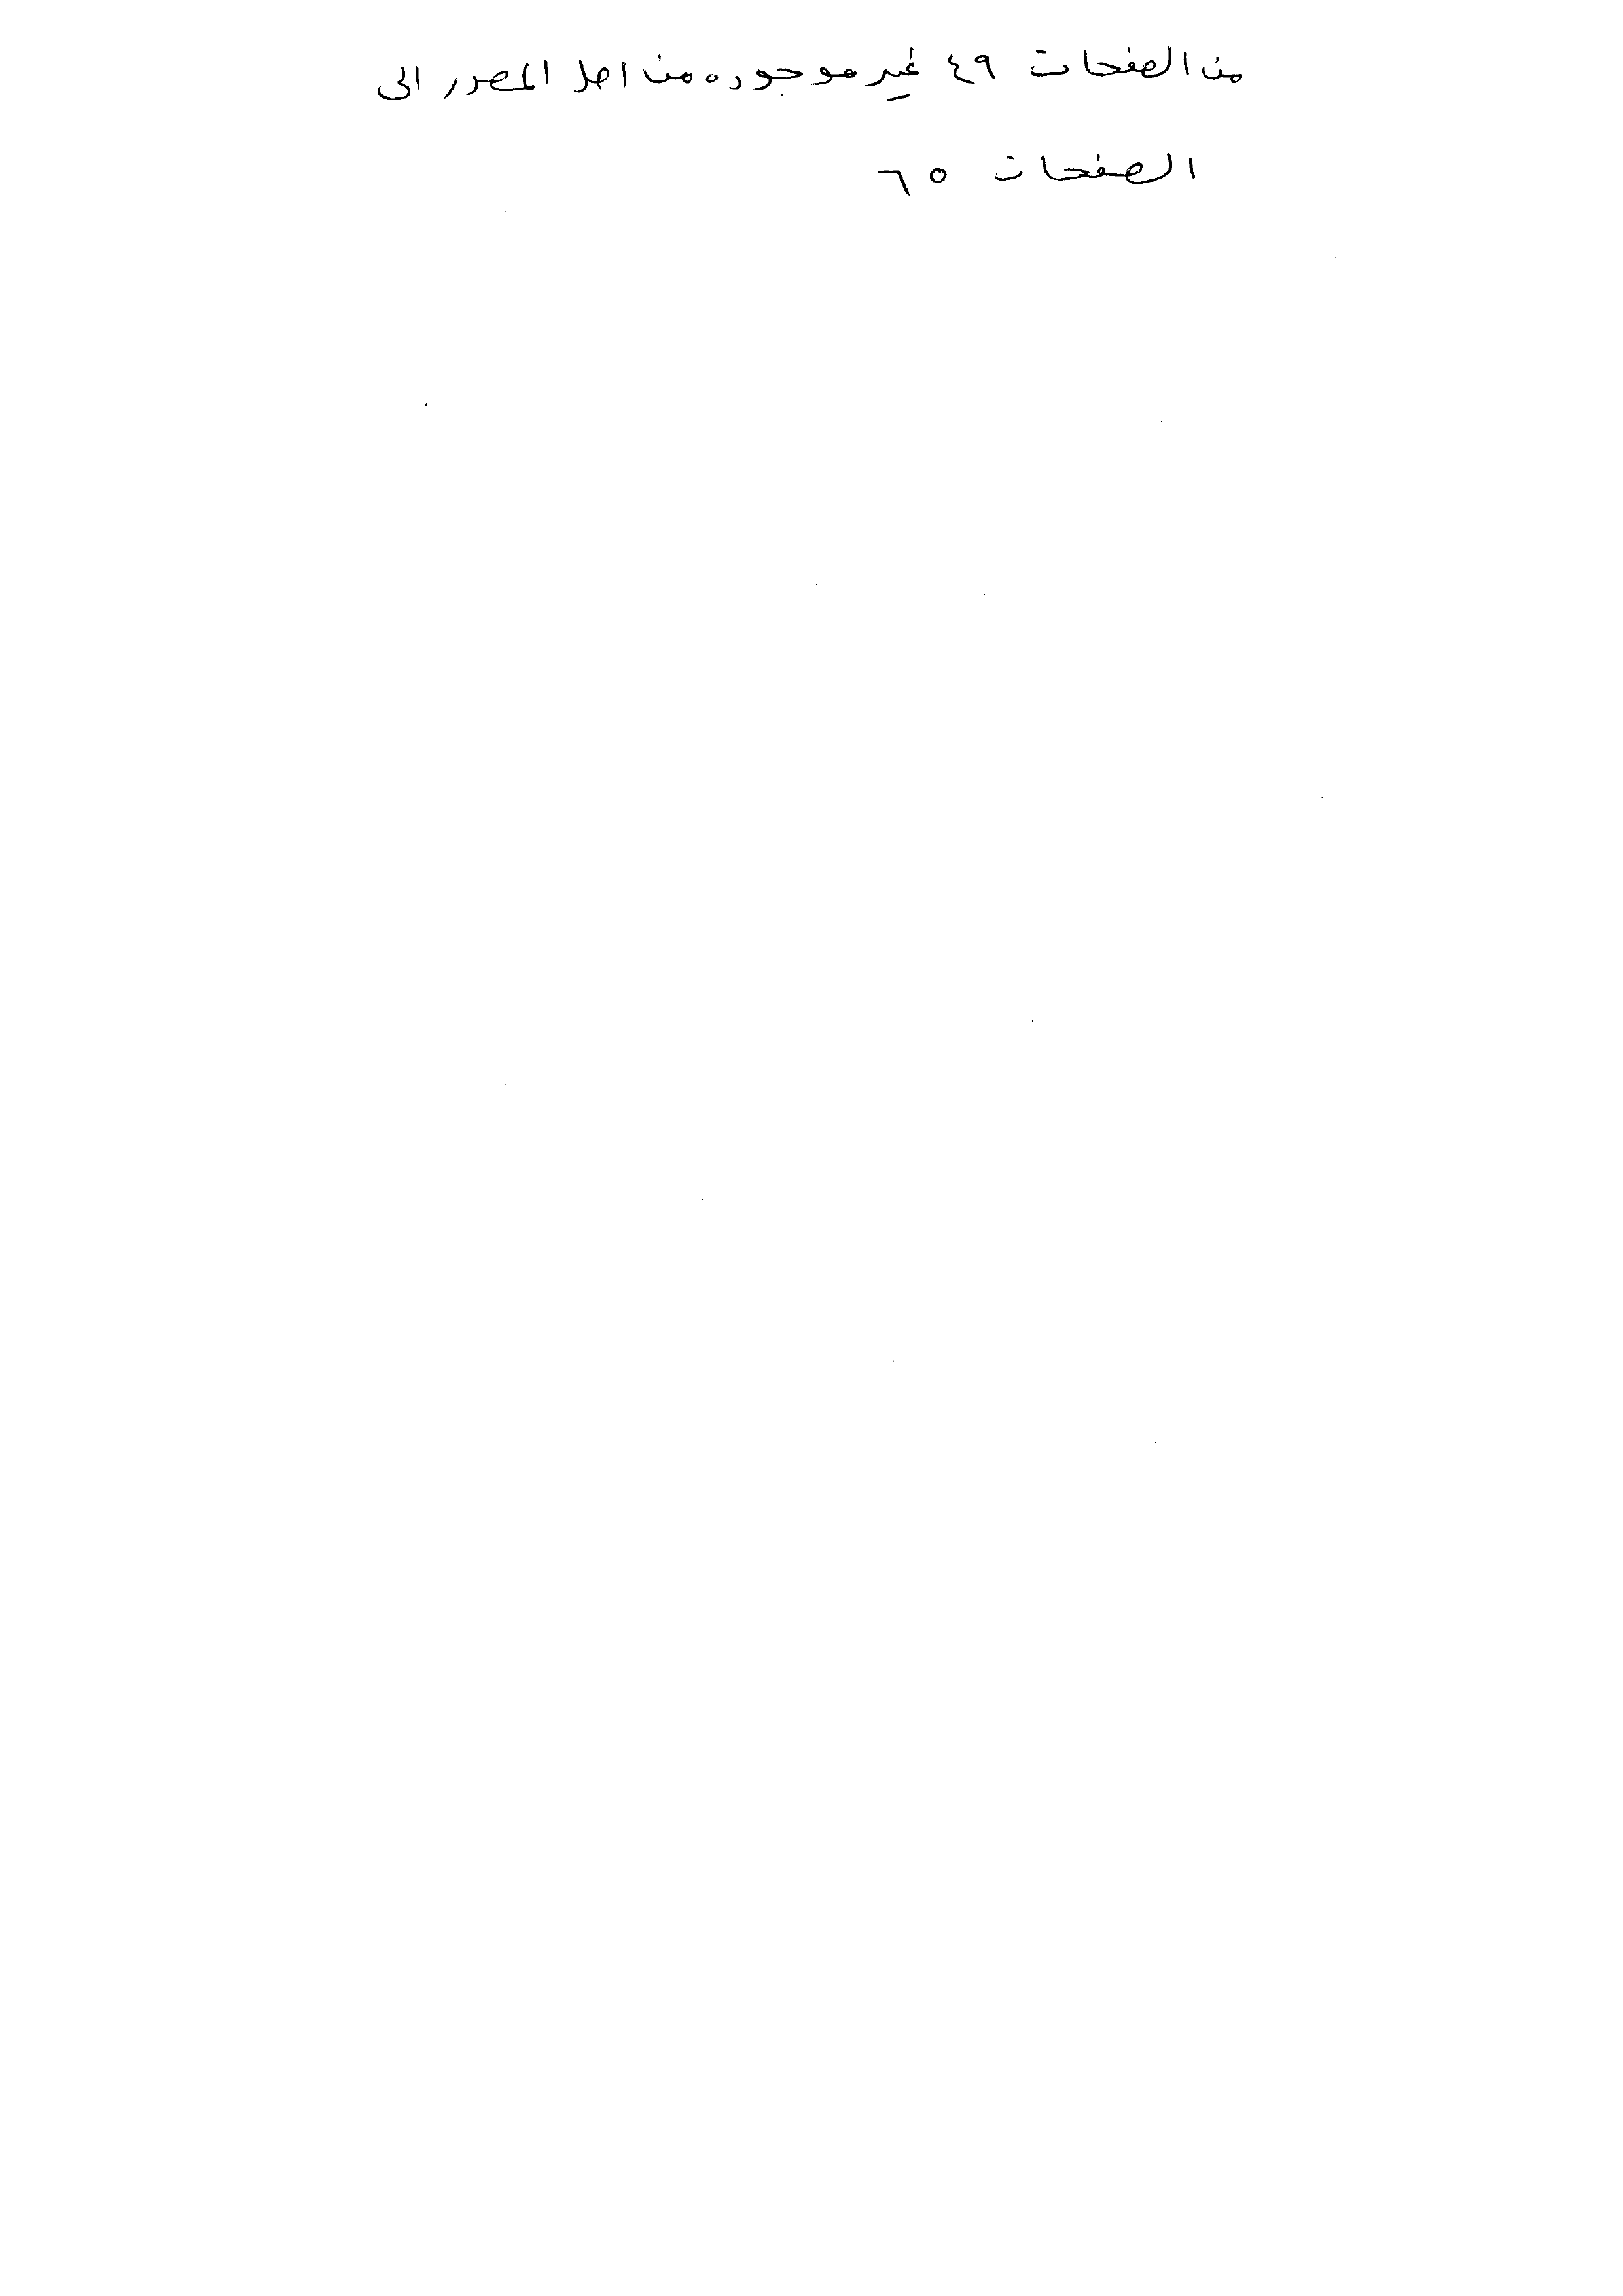 من الصفحات ٤٩ غير موجوده من اصل المصدر الى
الصفحات ٦٥